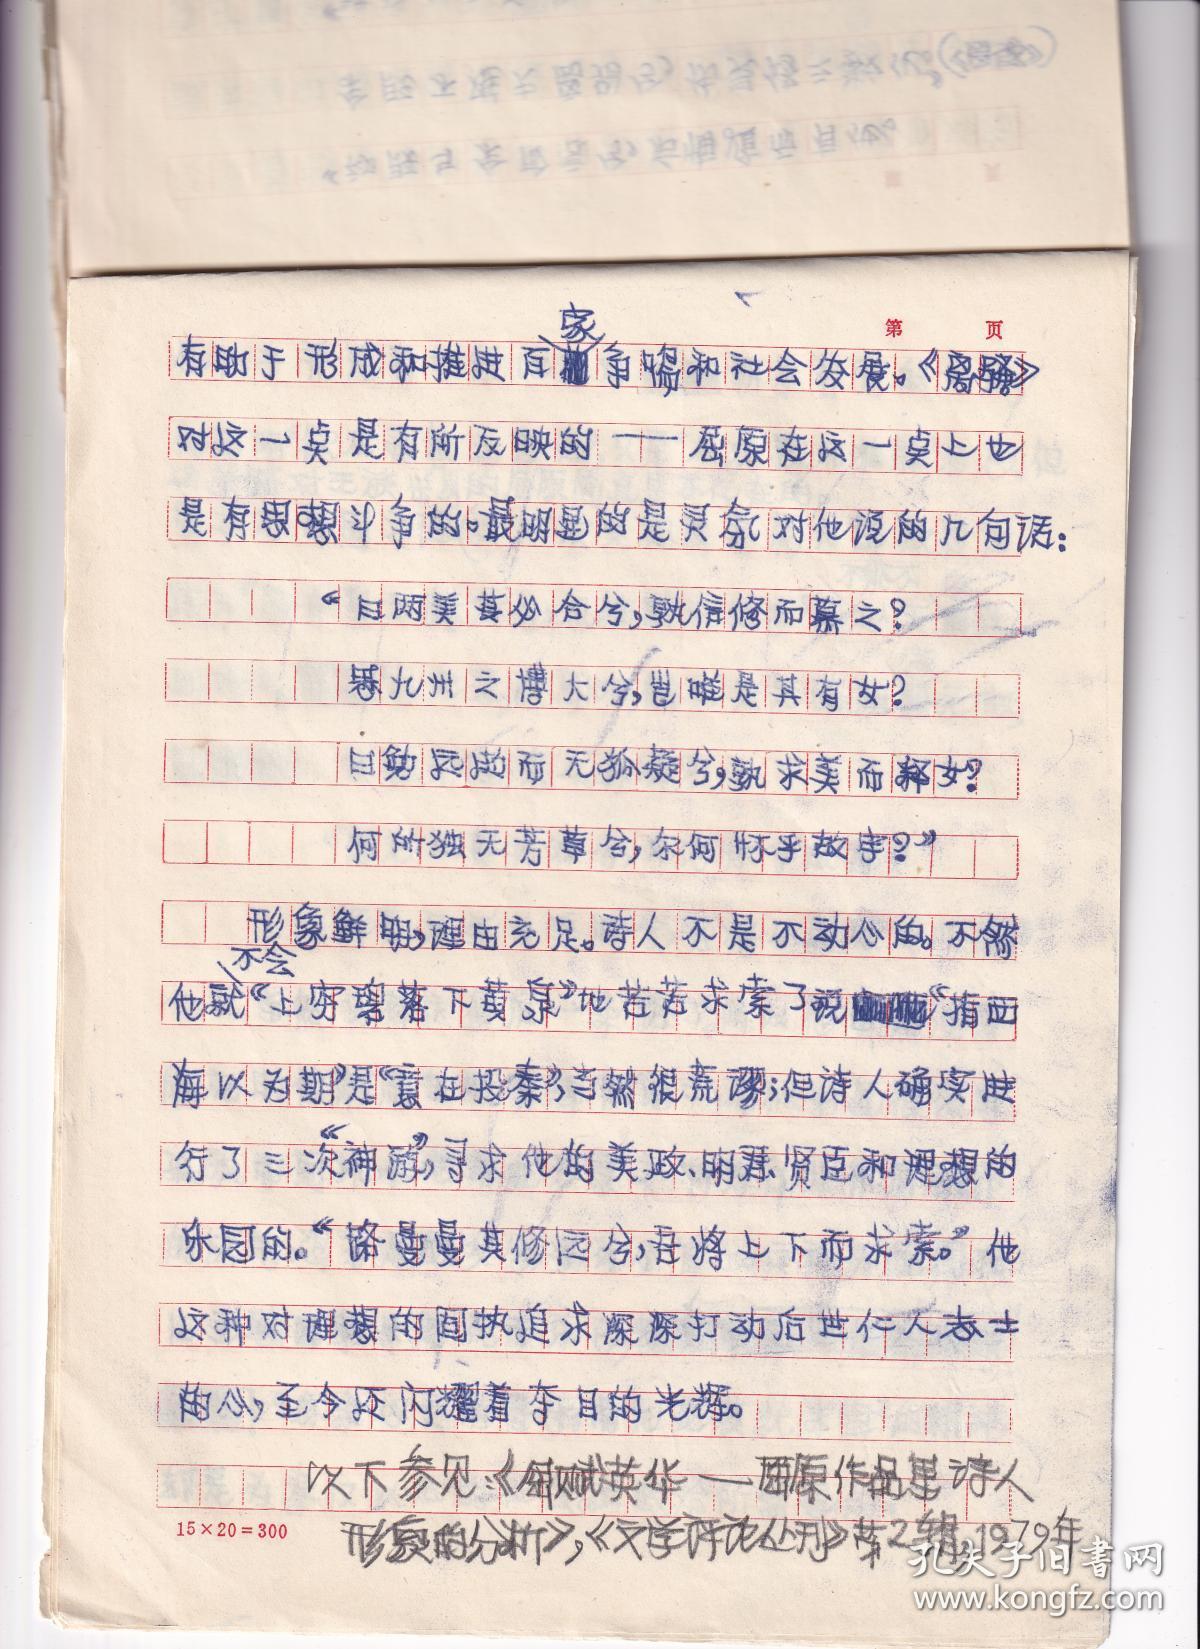 第 页
有助于形成和推进百家争鸣和社会发展。《离骚》
对这一点是有所反映的——屈原在这一点上也
是有思想斗争的。最明显的是灵氛对他说的几句话：
“曰两美其必合兮，孰信修而慕之？
思九州之博大兮，岂唯是其有女？
曰勉远逝而无狐疑兮，孰求美而释女？
何所独无芳草兮，尔何怀乎故宇？”
形象鲜明，理由充足。诗人不是不动心的。不然
他就不会“上穷碧落下黄泉”地苦苦求索了说“指西
海以为期”是“意在投秦”，当然很荒谬；但诗人确实进
行了三次“神游”，寻求他的美政、明君、贤臣和理想的
乐园的。“路曼曼其修远兮，吾将上下而求索。”他
这种对理想的固执追求深深打动后世仁人志士
的心，至今还闪耀着夺目的光辉。
以下参见：《 赋英华—屈原作品里诗人
形象的分析》，《文学评论丛刊》第2辑，1979年
15×20=300
孔夫子旧书网
www.kongfz.com